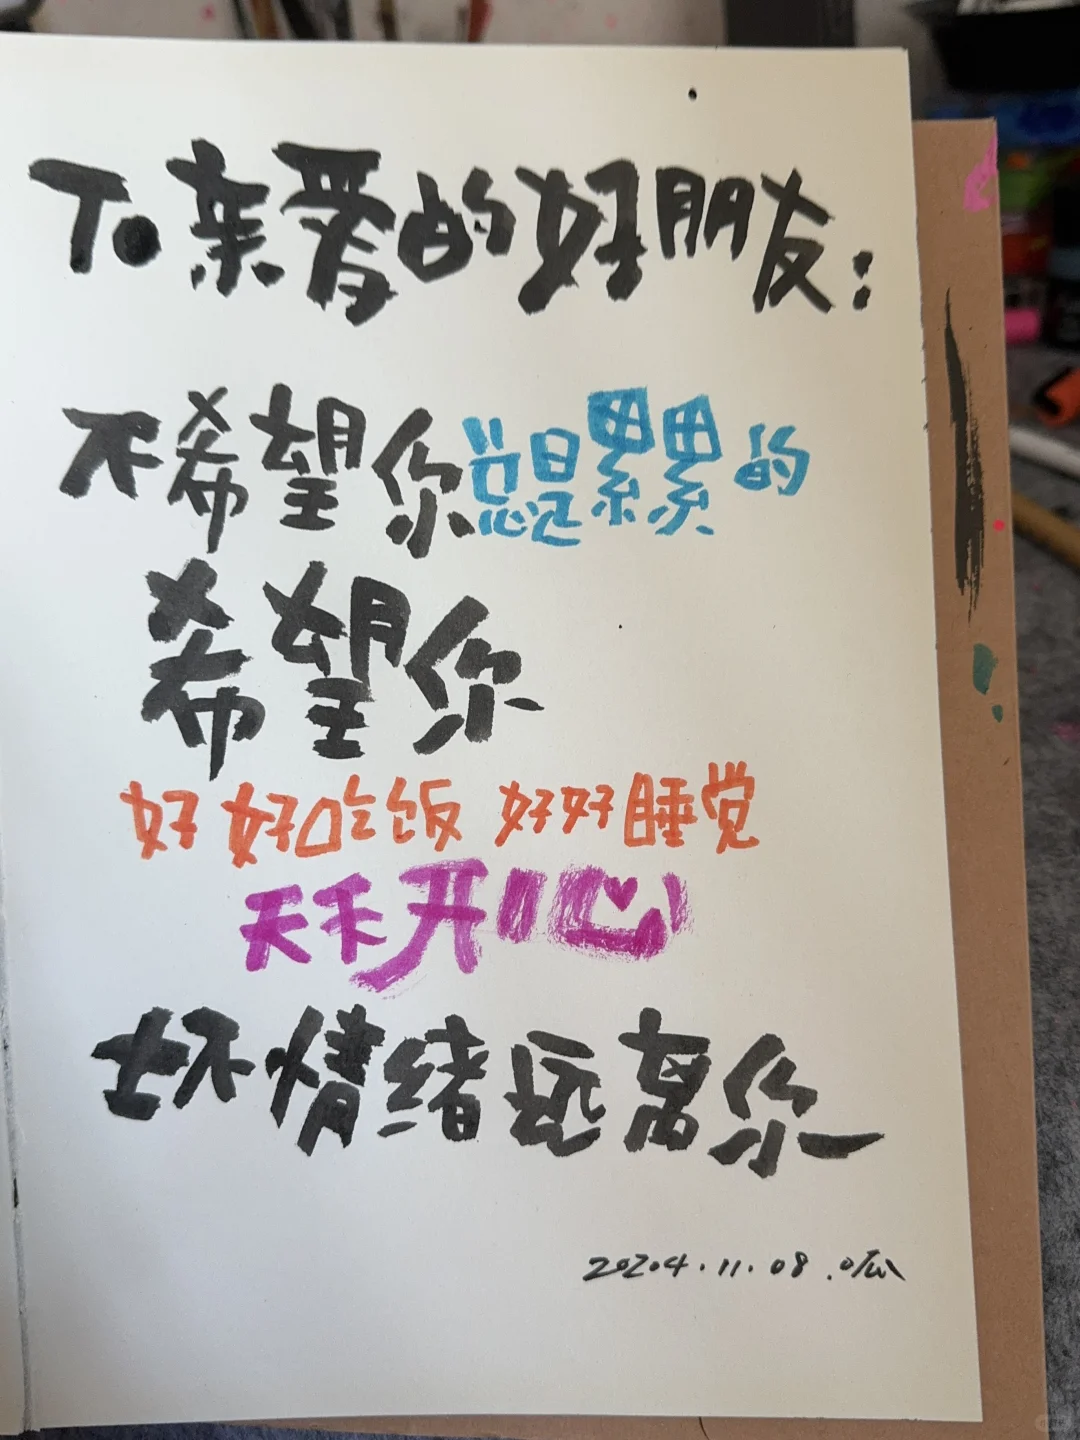 To 亲爱的好朋友:
不希望你总是累累的
希望你
好好吃饭 好好睡觉
天天开心
坏情绪远离你
2024.11.08.呱